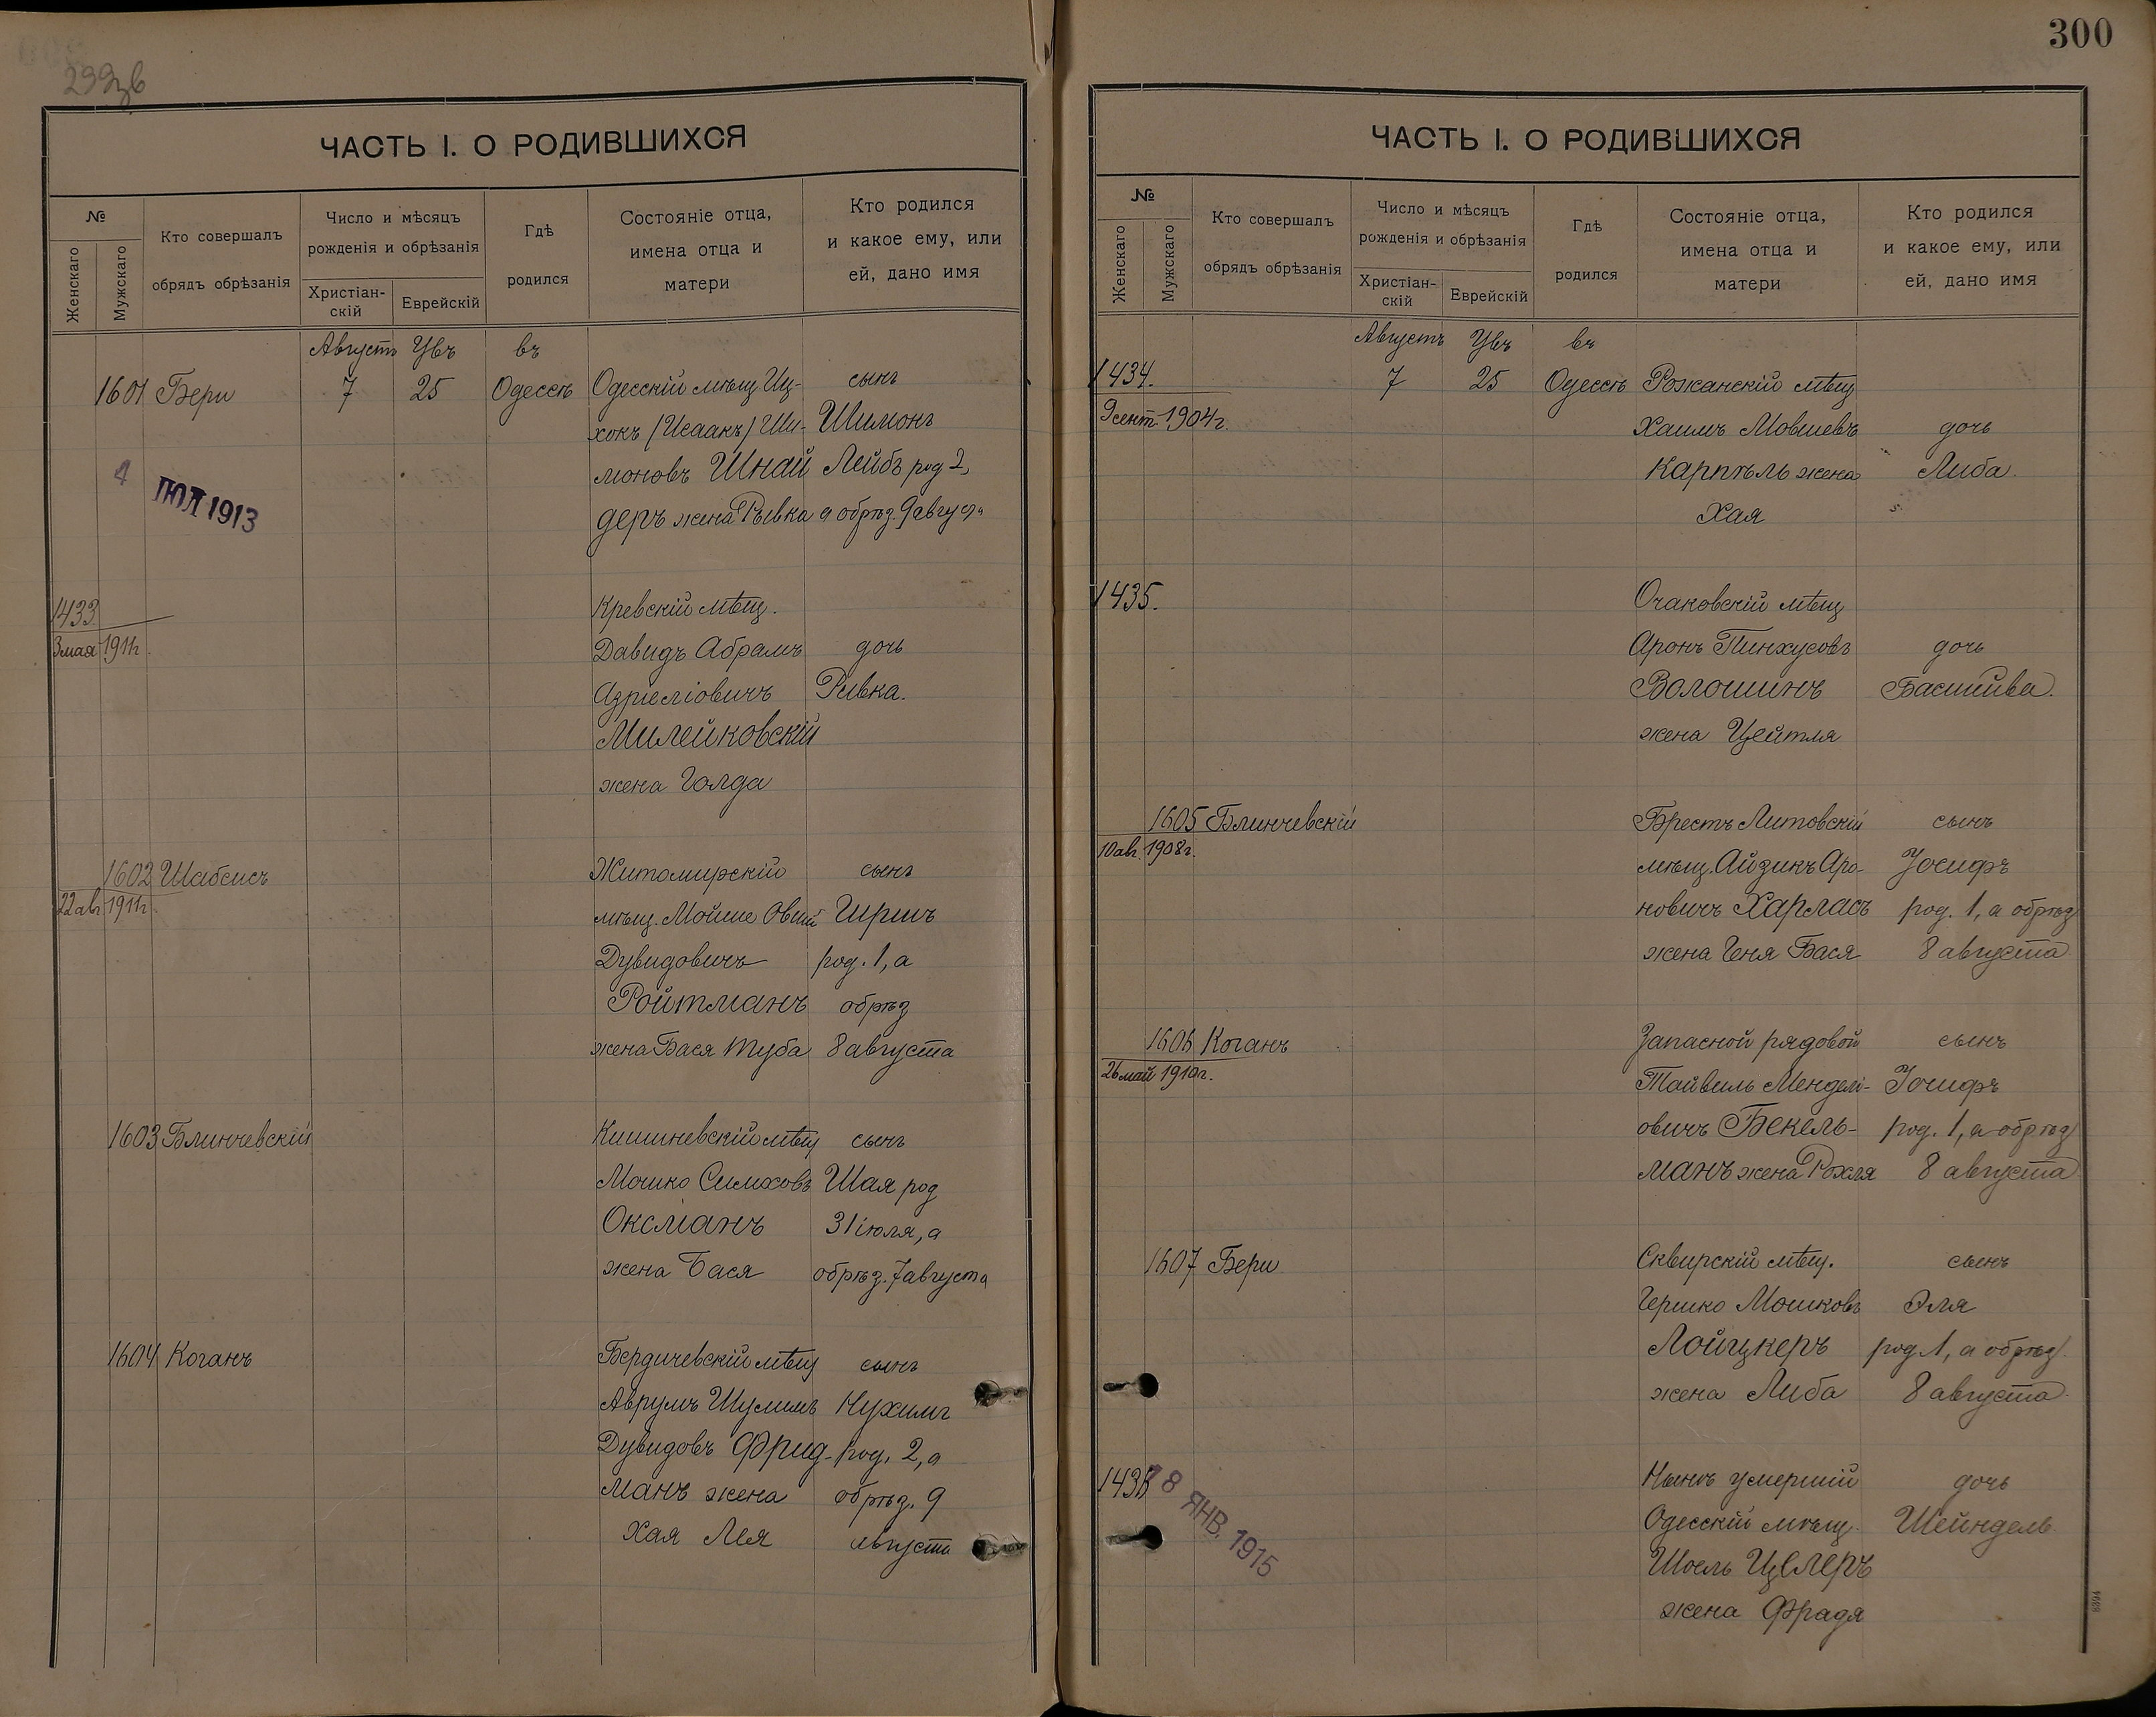 300
299зв
ЧАСТЬ I. О РОДИВШИХСЯ
№
Женскаго
Мужскаго
Кто совершалъ
обрядъ обрѣзанія
Число и мѣсяцъ
рожденія и обрѣзанія
Христіан-
скій
Еврейскій
Гдѣ
родился
Состояніе отца,
имена отца и
матери
Кто родился
и какое ему, или
ей, дано имя
Августъ Увъ въ
1601 Бери 7 25 Одессѣ Одесскій мѣщ. Иц- сынъ
хокъ (Исаакъ) Ши- Шимонъ
моновъ Шнай Лейбъ род 2,
деръ жена Рывка а обрѣз. 9 августа
4 ИЮЛ 1913
1433 Кревскій мѣщ.
3 мая 1911г. Давидъ Абрамъ дочь
Азріеліовичъ Ривка.
Милейковскій
жена Голда
1602 Шабсисъ Житомирскій сынъ
22 авг 1911г. мѣщ. Мойше Овшій Гиршъ
Дувидовичъ род. 1, а
Ройтманъ обрѣз
жена Бася Туба 8 августа
1603 Блинчевскій Кишиневскій мѣщ сынъ
Мошко Симховъ Шая род
Оксманъ 31 іюля, а
жена Бася обрѣз. 7 августа
1604 Коганъ Бердичевскій мѣщ сынъ
Аврумъ Шулимъ Нухимъ
Дувидовъ Фрид- род. 2, а
манъ жена обрѣз. 9
Хая Лея августа
ЧАСТЬ I. О РОДИВШИХСЯ
№
Женскаго
Мужскаго
Кто совершалъ
обрядъ обрѣзанія
Число и мѣсяцъ
рожденія и обрѣзанія
Христіан-
скій
Еврейскій
Гдѣ
родился
Состояніе отца,
имена отца и
матери
Кто родился
и какое ему, или
ей, дано имя
Августъ Увъ въ
1434. 7 25 Одессѣ Рожанскій мѣщ
9 сент. 1904г. Хаимъ Мовшевъ дочь
Карпѣль жена Либа.
Хая
1435. Очаковскій мѣщ
Аронъ Пинхусовъ дочь
Волошинъ Басшива.
жена Цейтля
1605 Блинчевскій Брестъ Литовскій сынъ
10 авг. 1908г. мѣщ. Айзикъ Аро- Іосифъ
новичъ Харласъ род. 1, а обрѣз
жена Геня Бася 8 августа
1606 Коганъ Запасной рядовой сынъ
26 май 1910г. Тайвиль Мендели- Іосифъ
овичъ Бекель- род. 1, а обрѣз
манъ жена Рохля 8 августа
1607 Бери Сквирскій мѣщ. сынъ
Гершко Мошковъ Эля
Лойцкеръ род 1, а обрѣз.
жена Либа 8 августа
1436 Нынѣ умершій дочь
18 ЯНВ. 1915 Одесскій мѣщ. Шейндель
Шоель Целлеръ
жена Фрадя